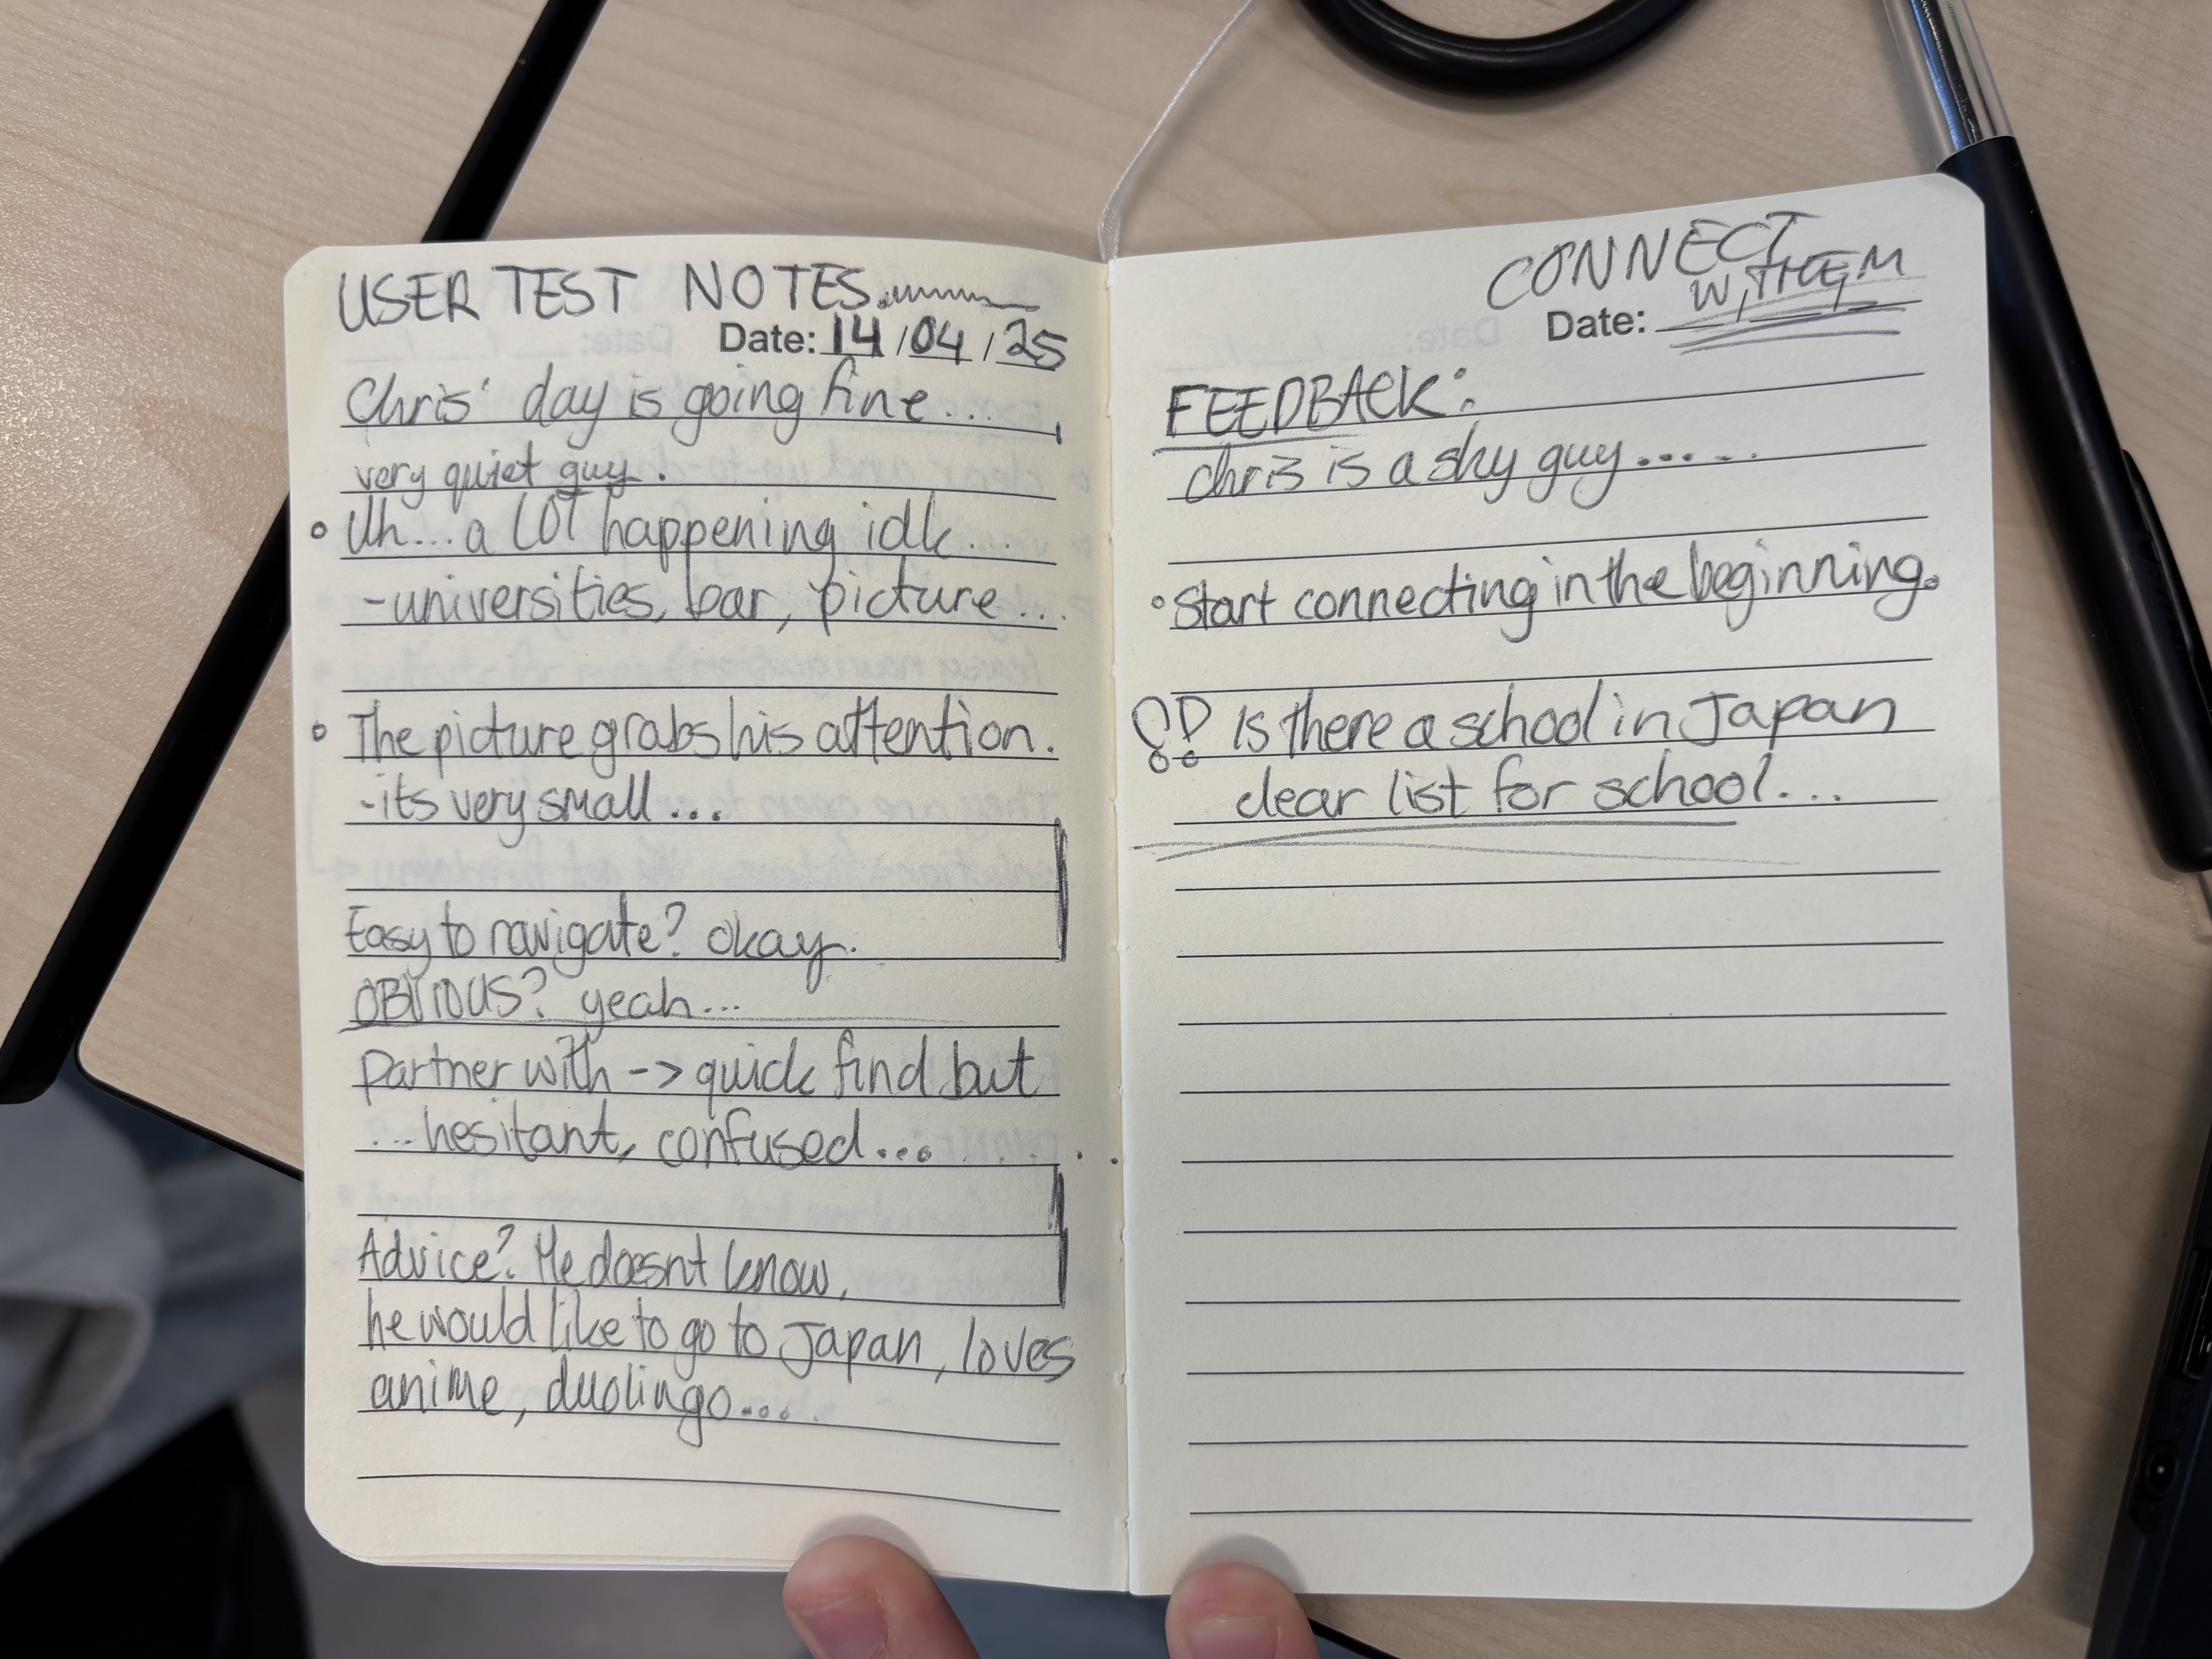 USER TEST NOTES
Date: 14/04/25
Chris' day is going fine...
very quiet guy.
Uh... a LOT happening idk...
-universities, bar, picture...
The picture grabs his attention.
-its very small...
Easy to navigate? okay.
OBVIOUS? yeah...
Partner with -> quick find but
...hesitant, confused...
Advice? He doesnt know,
he would like to go to Japan, loves
anime, duolingo...
CONNECT
W/THEM
Date:
FEEDBACK:
Chris is a shy guy......
•Start connecting in the beginning.
!! Is there a school in Japan
clear list for school...